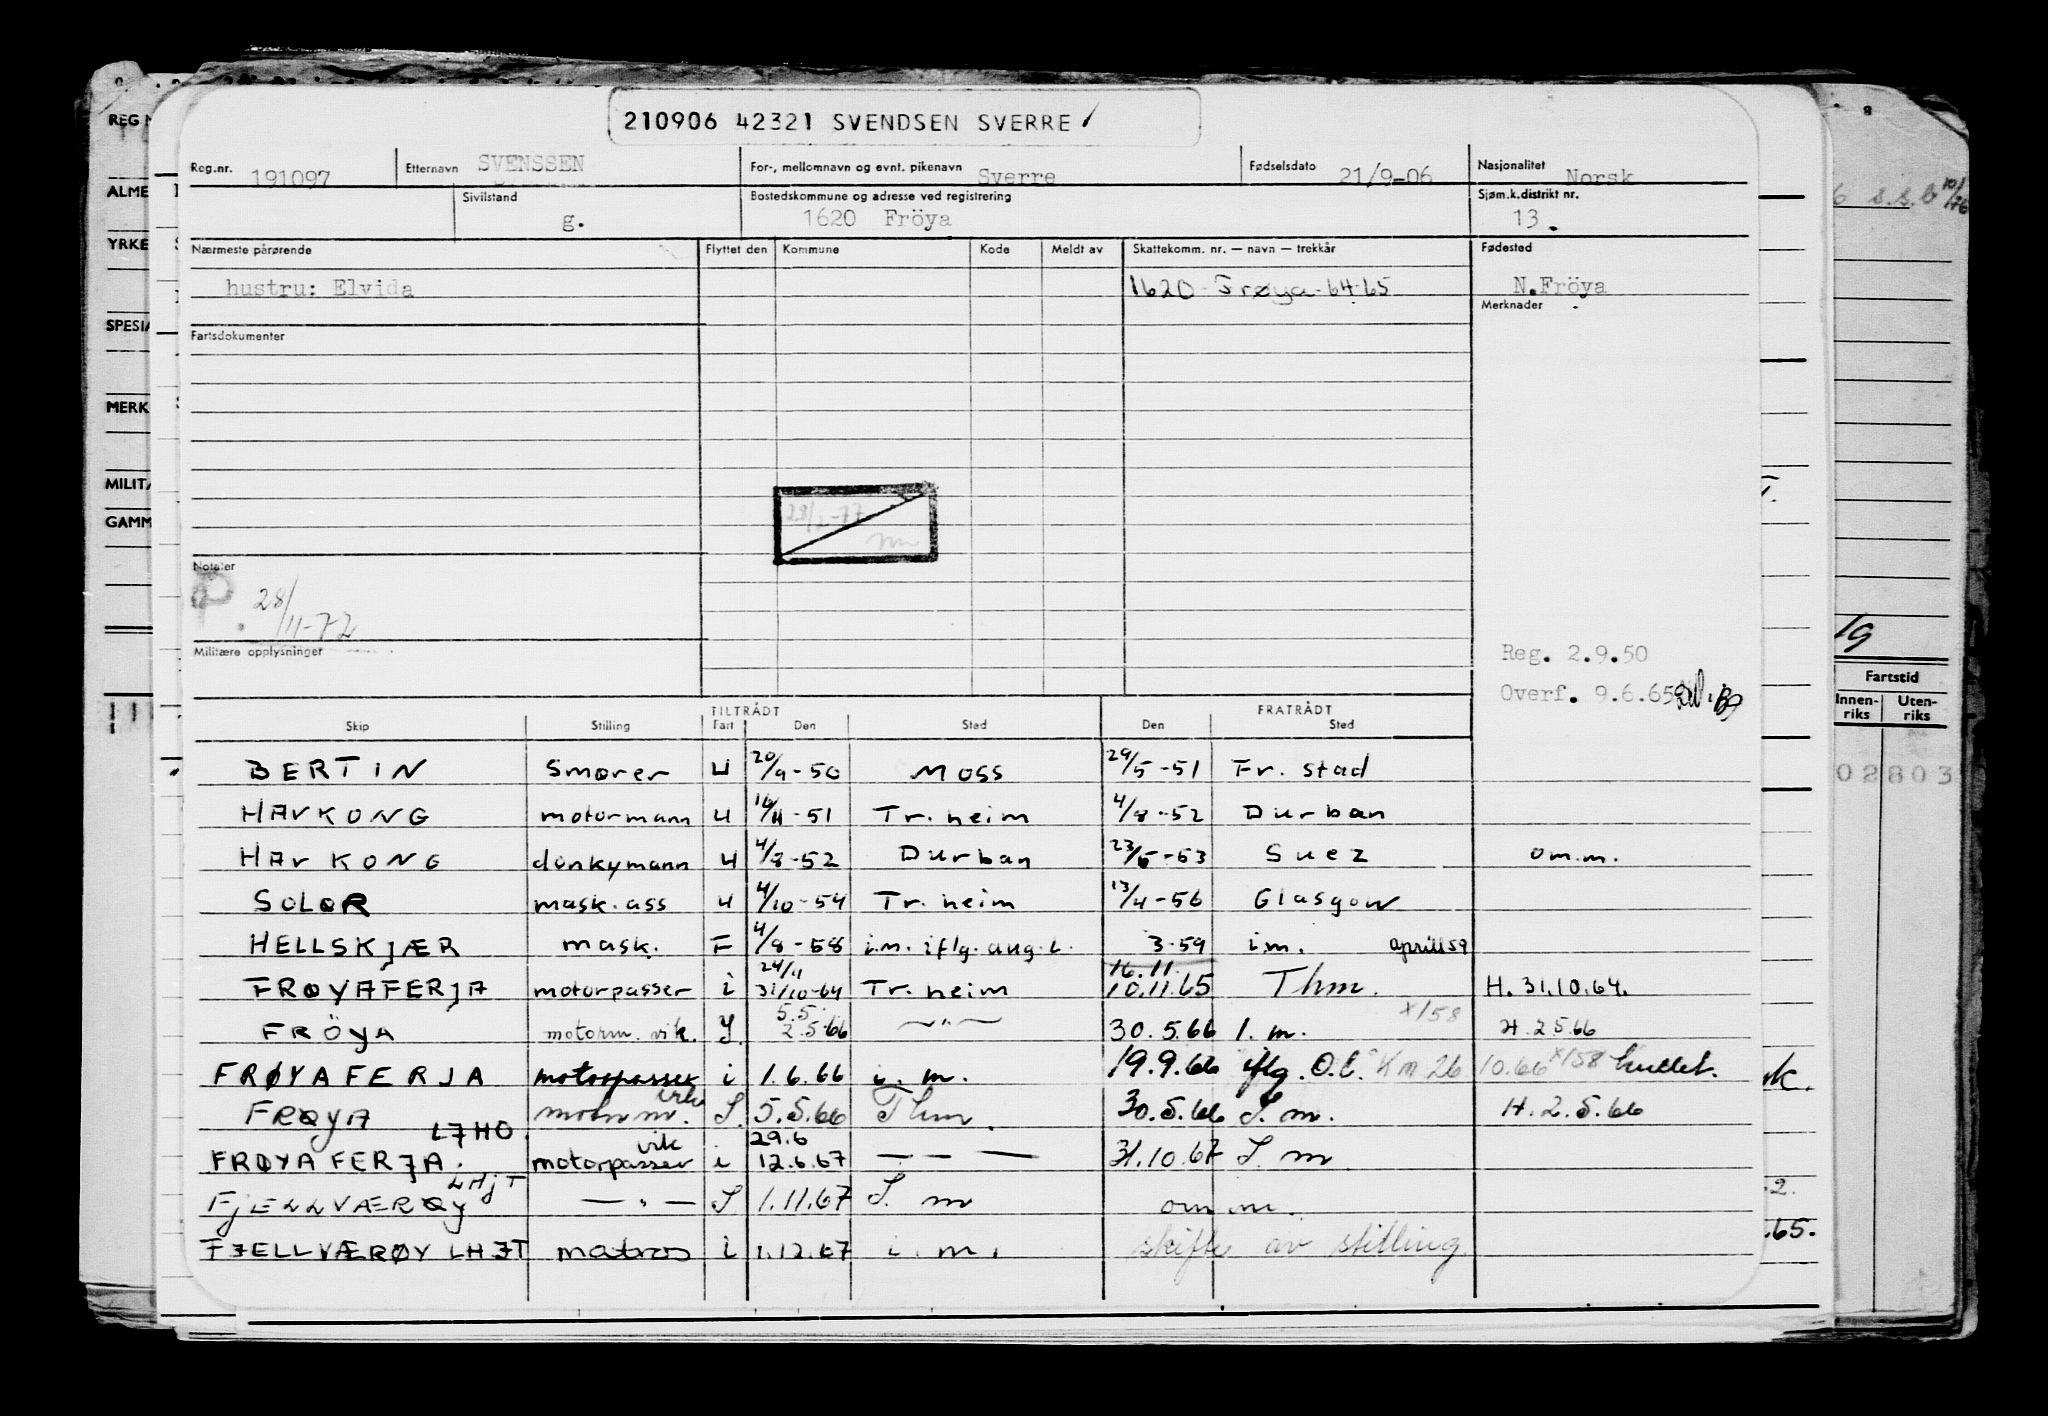 210906 42321 SVENDSEN SVERRE
Reg.nr. 191097 Etternavn SVENSSEN For-, mellomnavn og evnt. pikenavn Sverre Fødselsdato 21/9-06 Nasjonalitet Norsk
Sivilstand g. Bostedskommune og adresse ved registrering 1620 Fröya Sjøm.k.distrikt nr. 13.
Nærmeste pårørende Flyttet den Kommune Kode Meldt av Skattekomm. nr. — navn — trekkår Fødested
hustru: Elvida 1620 - Frøya - 64-65 N.Fröya
Merknader
Fartsdokumenter
28/2-77
Notater
P. 28/11-72
Militære opplysninger
Reg. 2.9.50
Overf. 9.6.65
TILTRÅDT FRATRÅDT
Skip Stilling Fart Den Sted Den Sted
BERTIN Smører U 20/9-50 Moss 29/5-51 Fr. stad
HAVKONG motormann U 16/11-51 Tr. heim 4/8-52 Durban
HAVKONG donkymann U 4/8-52 Durban 23/5-53 Suez om.m.
SOLØR mask. ass U 4/10-54 Tr. heim 13/4-56 Glasgow
HELLSKJÆR mask. F 4/8-58 i.m. iflg. aug. l. 3-59 i.m. april 59
24/11 16.11.
FRØYAFERJA motorpasser i 31/10-64 Tr. heim 10.11.65 Thm. H. 31.10.64.
5.5 X/58
FRÖYA motorm. vik. I. 2.5.66 — " — 30.5.66 I. m. H. 2.5.66
FRØYAFERJA motorpasser i 1.6.66 i. m. 19.9.66 iflg. O.C. Km 26 10.66 X/58 kullet.
FRØYA motorm. vik I. 5.5.66 Thm. 30.5.66 I. m. H. 2.5.66
LJHO vik 29.6
FRØYAFERJA. motorpasser i 12.6.67 — — — 31.10.67 I. m
LHJT
FJELLVÆRØY — " — I 1.11.67 I. m om m.
FJELLVÆRØY LHJT matros i 1.12.67 i. m. skifte av stilling
REG N
ALME
YRKE
SPESIA
MERK
MILITÆ
GAMM
8
s.s.b 10/1/76
19
Fartstid
Innen-riks Uten-riks
02803
.2.
.65.